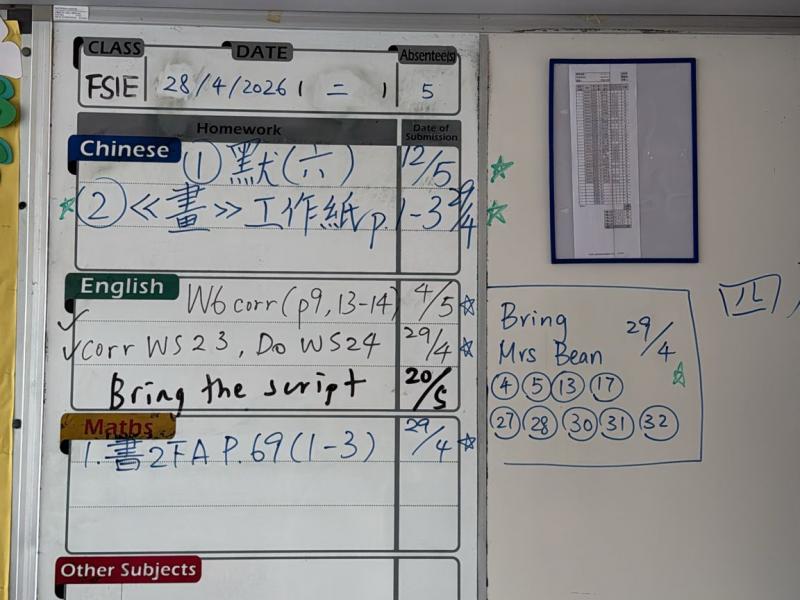 CLASS DATE Absentee(s)
FSIE 28/4/2026 ( 二 ) 5
Homework Date of Submission
Chinese
① 默(六) 12/5
② 《畫》工作紙 p.1-3 29/4
English
W6 corr (p9, 13-14) 4/5
✓ Corr WS23, Do WS24 29/4
Bring the script 20/5
Maths
1. 書2FA P.69 (1-3) 29/4
Other Subjects
Bring 29/4
Mrs Bean
④ ⑤ ⑬ ⑰
㉗ ㉘ ㉚ ㉛ ㉜
四